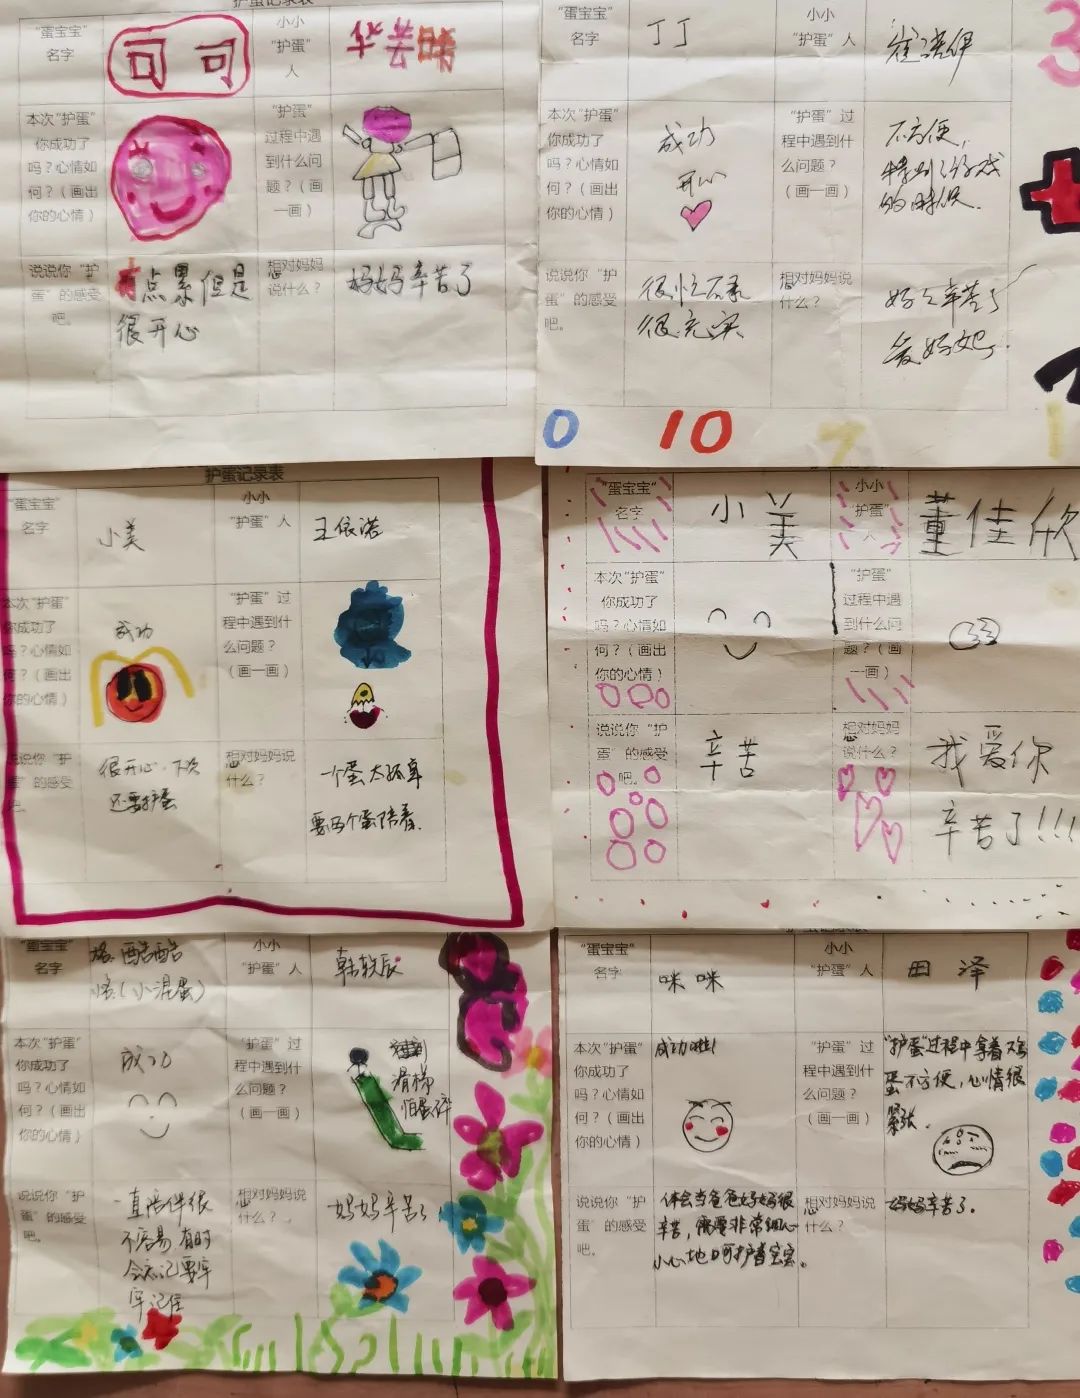 护蛋记录表
"蛋宝宝"
名字
可 可
小小
"护蛋"
人
本次"护蛋"
你成功了
吗？心情如
何？（画出
你的心情）
"护蛋"
过程中遇
到什么问
题？（画
一画）
说说你"护
蛋"的感受
吧。
有点累但是
很开心
想对妈妈
说什么？
妈妈辛苦了
"蛋宝宝"
名字
丁丁
小小
"护蛋"人
本次"护蛋"
你成功了
吗？心情如
何？（画出
你的心情）
成功
开心
"护蛋"过
程中遇到什
么问题？
（画一画）
不方便，
特别是游戏
的时候.
说说你"护
蛋"的感受
吧。
很忙碌
很充实
想对妈妈说
什么？
妈妈辛苦了
爱妈妈.
0 10 7 1
护蛋记录表
"蛋宝宝"
名字
小美
小小
"护蛋"人
王依诺
本次"护蛋"
你成功了
吗？心情如
何？（画出
你的心情）
成功
"护蛋"过
程中遇到什
么问题？
（画一画）
说说你"护
蛋"的感受
吧。
很开心.下次
还要护蛋
想对妈妈说
什么？
一个蛋太孤单
要两个蛋陪着.
"蛋宝宝"
名字
小美
小小
"护蛋"
人
董佳欣
本次"护蛋"
你成功了
吗？心情如
何？（画出
你的心情）
"护蛋"
过程中遇
到什么问
题？（画
一画）
说说你"护
蛋"的感受
吧。
辛苦
想对妈妈
说什么？
我爱你
辛苦了!!!
"蛋宝宝"
名字
酷酷
（小混蛋）
小小
"护蛋"人
韩轶辰
本次"护蛋"
你成功了
吗？心情如
何？（画出
你的心情）
成功
"护蛋"过
程中遇到什
么问题？
（画一画）
滑梯
怕蛋碎
说说你"护
蛋"的感受
吧。
一直陪伴很
不容易.有时
会忘记要牢
牢记住
想对妈妈说
什么？
妈妈辛苦了
"蛋宝宝"
名字
咪咪
小小
"护蛋"人
田泽
本次"护蛋"
你成功了
吗？心情如
何？（画出
你的心情）
成功啦!
"护蛋"过
程中遇到什
么问题？
（画一画）
"护蛋"过程中拿着鸡
蛋不方便，心情很
紧张.
说说你"护
蛋"的感受
吧。
体会当爸爸妈妈很
辛苦，需要非常细心
小心地呵护着宝宝。
想对妈妈说
什么？
妈妈辛苦了.